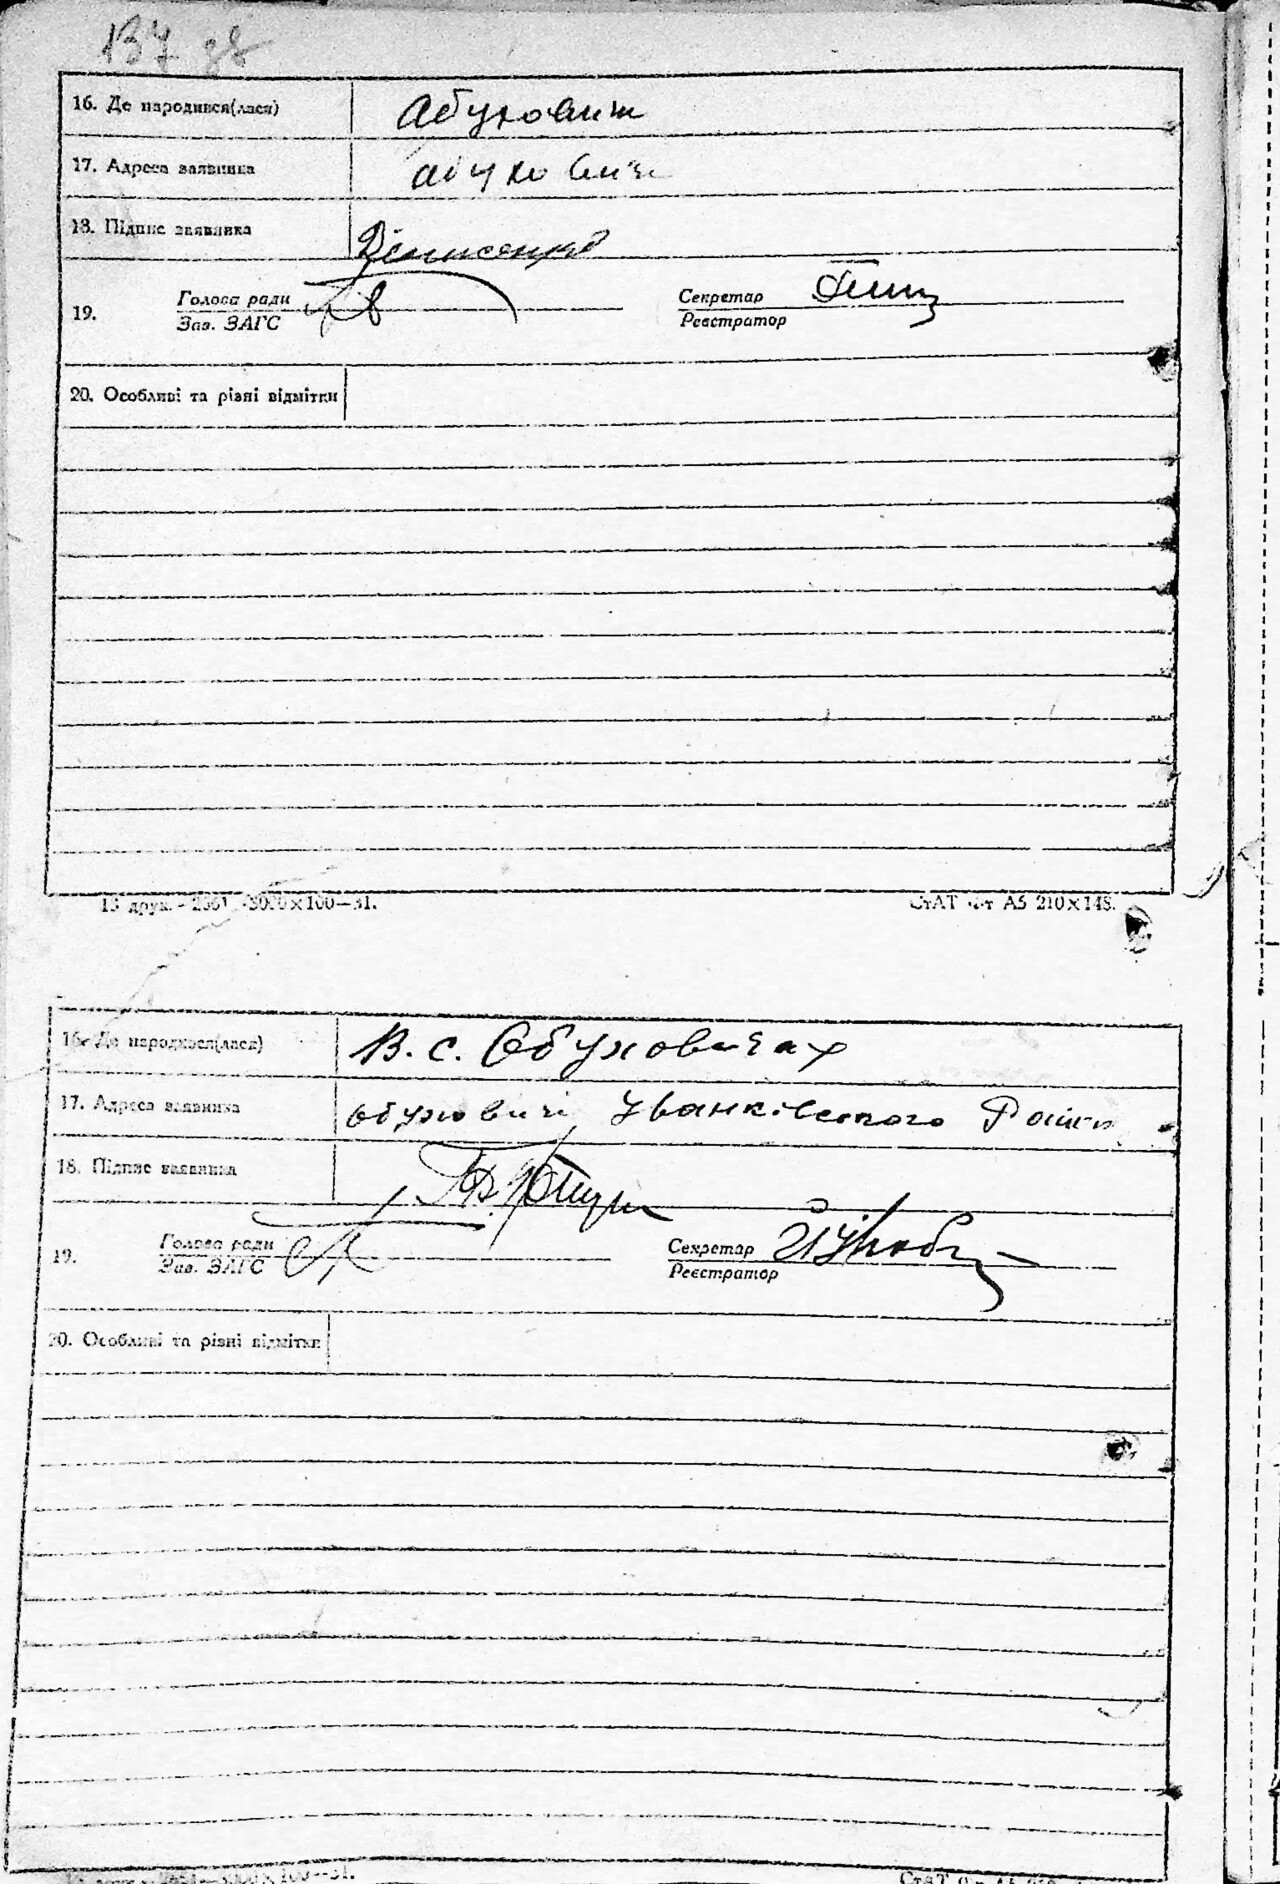 137 зв
16. Де народився(лася) Абуховичі
17. Адреса заявника Абуховичі
18. Підпис заявника Денисенко
19. Голова ради Секретар
Зав. ЗАГС Реєстратор
20. Особливі та різні відмітки
13 друк. - 2361 -3000×100—31. СтАТ А5 210×148.
16. Де народився(лася) В. с. Обуховичах
17. Адреса заявника Обуховичі Іванківського Району
18. Підпис заявника
19. Голова ради Секретар
Зав. ЗАГС Реєстратор
20. Особливі та різні відмітки